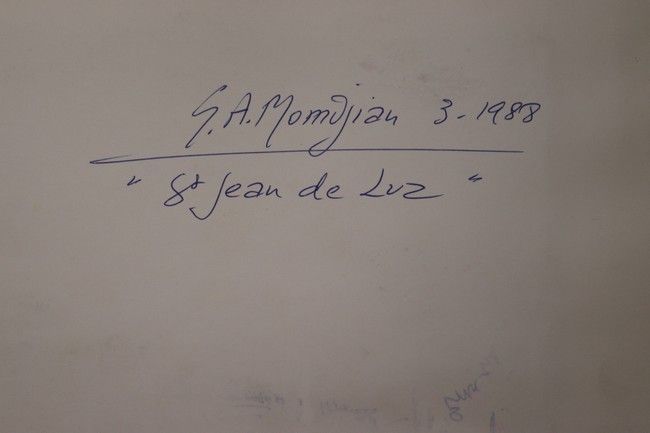 G.A. Momdjian 3-1988
" St Jean de Luz "